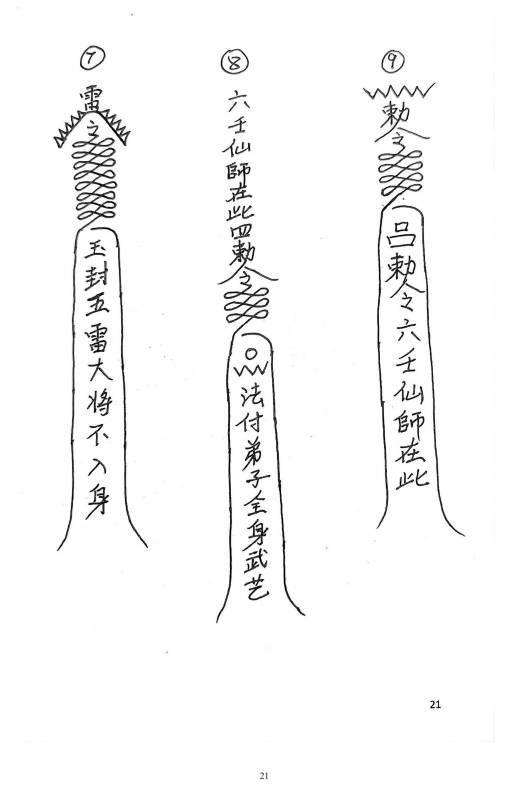 ⑦
雷
令
玉封五雷大将不入身
⑧
六壬仙師在此四勅令
法付弟子全身武艺
⑨
勅令
吕勅令六壬仙師在此
21
21